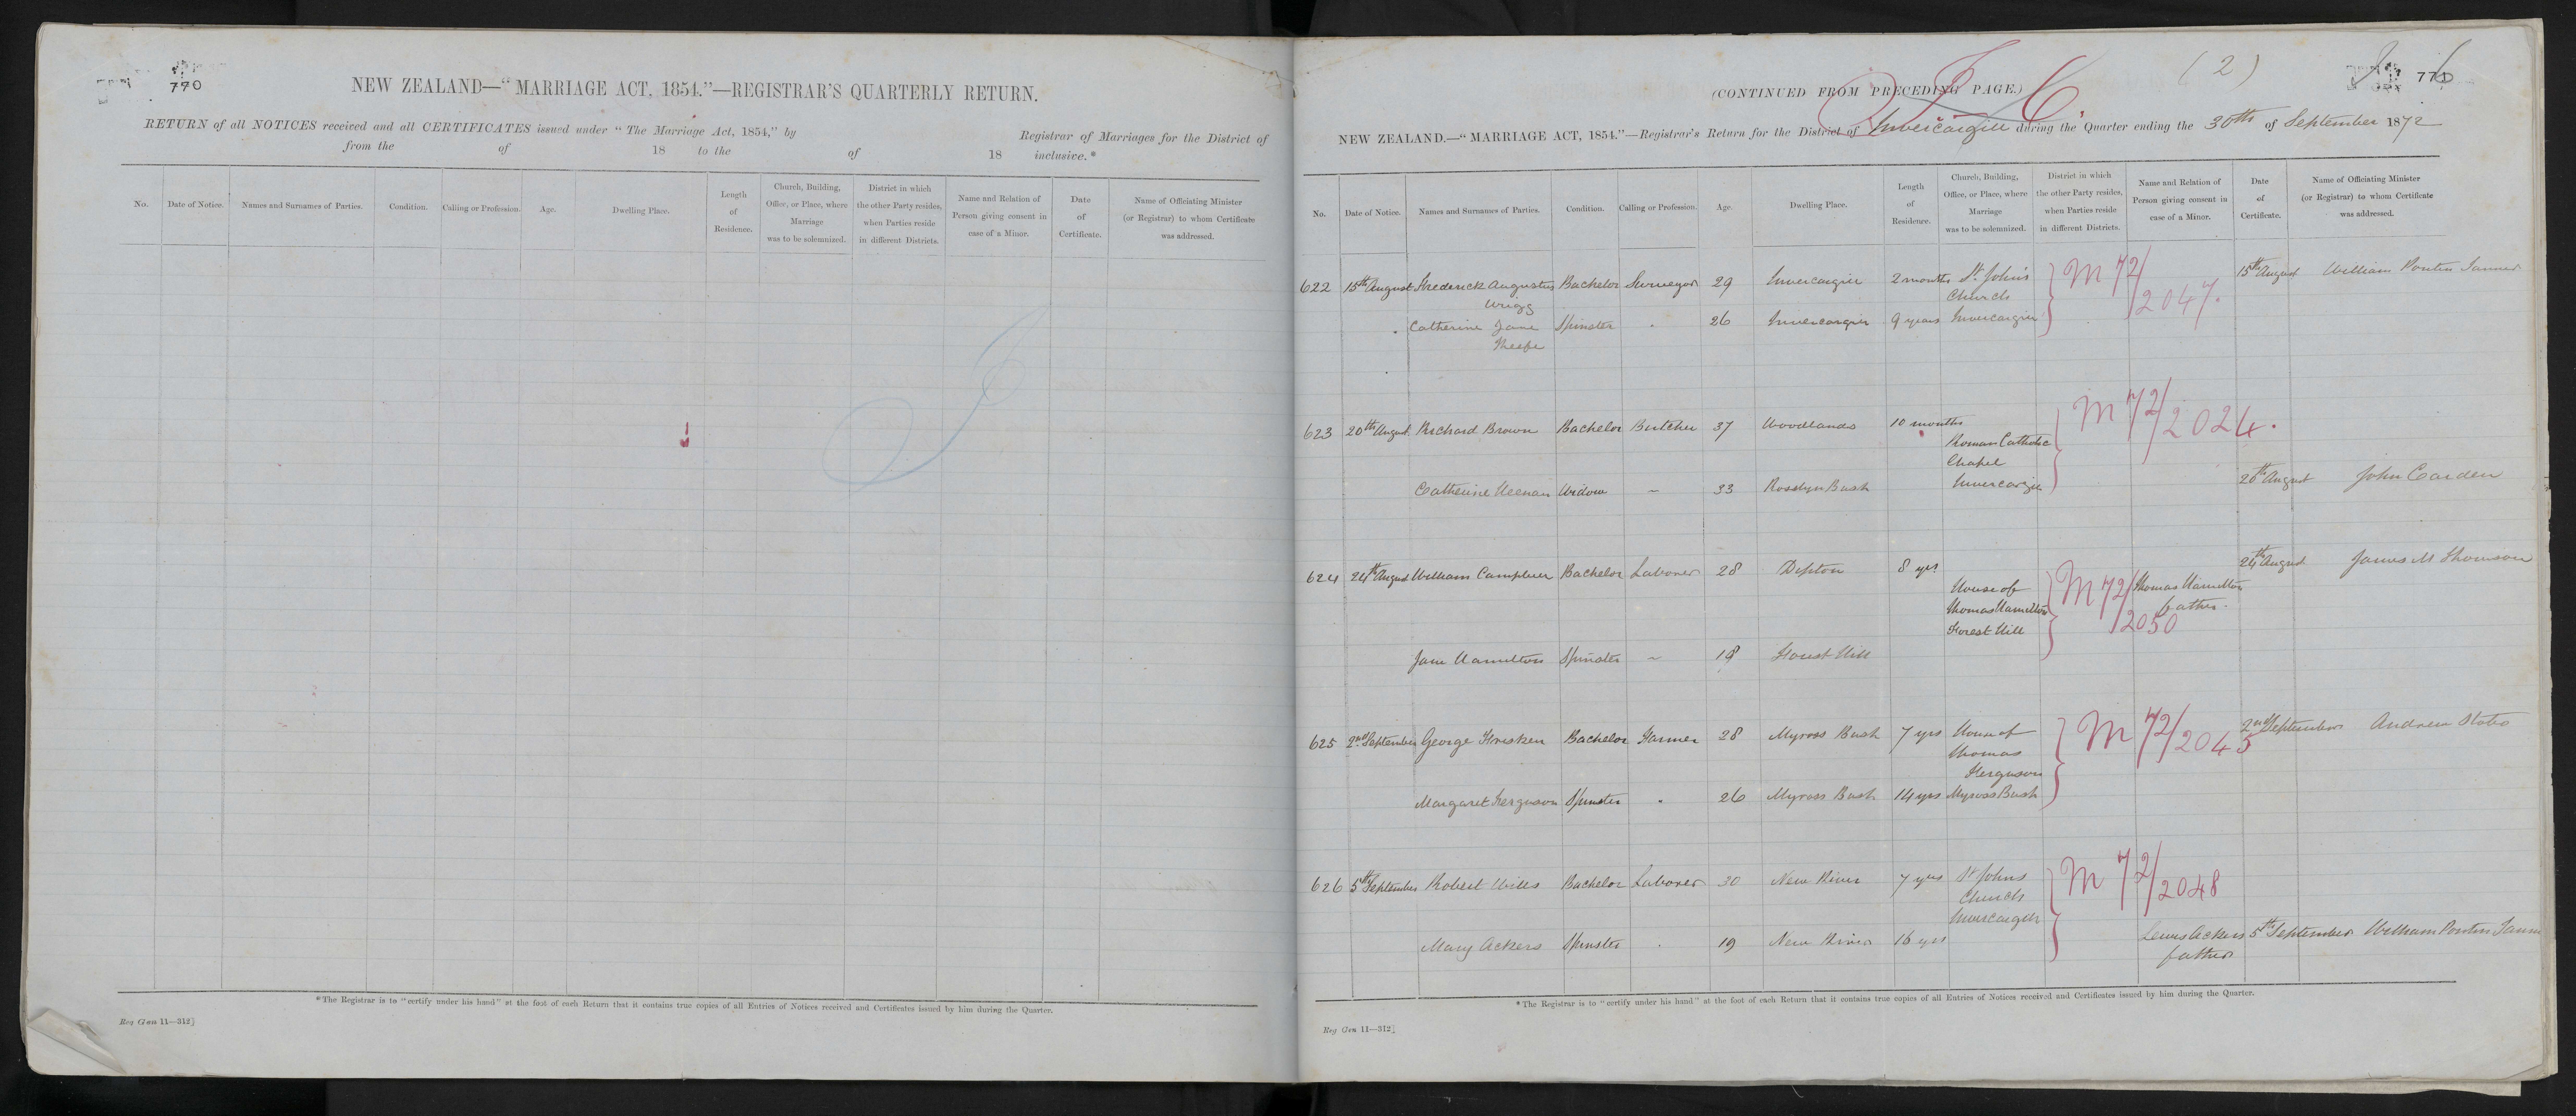 770
NEW ZEALAND—"MARRIAGE ACT, 1854."—REGISTRAR'S QUARTERLY RETURN.
RETURN of all NOTICES received and all CERTIFICATES issued under "The Marriage Act, 1854," by Registrar of Marriages for the District of
from the of 18 to the of 18 inclusive.*
No. Date of Notice. Names and Surnames of Parties. Condition. Calling or Profession. Age. Dwelling Place. Length of Residence. Church, Building, Office, or Place, where Marriage was to be solemnized. District in which the other Party resides, when Parties reside in different Districts. Name and Relation of Person giving consent in case of a Minor. Date of Certificate. Name of Officiating Minister (or Registrar) to whom Certificate was addressed.
*The Registrar is to "certify under his hand" at the foot of each Return that it contains true copies of all Entries of Notices received and Certificates issued by him during the Quarter.
Reg Gen 11—312]
(2)
771
(CONTINUED FROM PRECEDING PAGE.)
NEW ZEALAND.—"MARRIAGE ACT, 1854."—Registrar's Return for the District of Invercargill during the Quarter ending the 30th of September 1872
No. Date of Notice. Names and Surnames of Parties. Condition. Calling or Profession. Age. Dwelling Place. Length of Residence. Church, Building, Office, or Place, where Marriage was to be solemnized. District in which the other Party resides, when Parties reside in different Districts. Name and Relation of Person giving consent in case of a Minor. Date of Certificate. Name of Officiating Minister (or Registrar) to whom Certificate was addressed.
622 15th August Frederick Augustus Bachelor Surveyor 29 Invercargill 2 months St John's M 72/2047. 15th August William Pontin Tanner
Wrigg Church
Catherine Jane Spinster 26 Invercargill 9 years Invercargill
623 20th August Richard Brown Bachelor Butcher 37 Woodlands 10 months M 72/2024.
Roman Catholic
Chapel
Catherine Keenan Widow ~ 33 Rosslyn Bush Invercargill 20th August John Carden
624 24th August William Bachelor Laborer 28 Dipton 8 yrs 24th August James M Thomson
House of M 72/2050 Thomas Hamilton
Thomas Hamilton father.
Forest Hill
Jane Hamilton Spinster ~ 18 Forest Hill
625 2nd September George Bachelor Farmer 28 Myross Bush 7 yrs House of M 72/2045 2nd September Andrew
Thomas
Ferguson
Margaret Ferguson Spinster 26 Myross Bush 14 yrs Myross Bush
626 5th September Robert Wills Bachelor Laborer 30 New River 7 yrs St Johns M 72/2048
Church
Invercargill
Mary Ackers Spinster 19 New River 16 yrs Lewis Ackers 5th September William Pontin
father
*The Registrar is to "certify under his hand" at the foot of each Return that it contains true copies of all Entries of Notices received and Certificates issued by him during the Quarter.
Reg Gen 11—312]